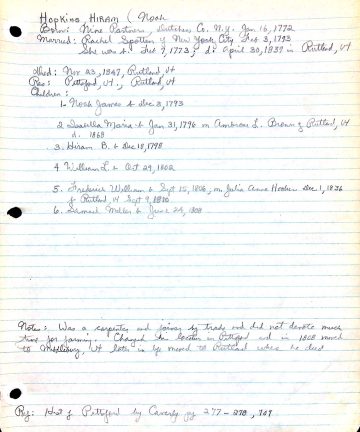 HOPKINS, HIRAM (Noah
Born: Nine Partners, Dutchess Co. N.Y. Jan 16, 1772
Married: Rachel Spotten of New York City Feb 3, 1793
She was b. Feb 9, 1773; d. April 30, 1839 in Rutland, Vt
Died: Nov 23, 1847, Rutland, Vt
Res: Pittsford, Vt., Rutland, Vt
Children:
1. Noah James b Dec 3, 1793
2. Isabella Maria b Jan 31, 1796 m Ambrose L. Brown of Rutland, Vt
d. 1868
3. Hiram B. b Dec 18, 1798
4. William L. b Oct 29, 1802
5. Frederick William b Sept 15, 1806, m. Julia Anna Hooker Dec 1, 1836
of Rutland, Vt Sept 9, 1880
6. Samuel Miller b June 29, 1808
Notes: Was a carpenter and joiner by trade and did not devote much
time for farming. Changed his location in Pittsford and in 1808 moved
to Middlebury, Vt later in life moved to Rutland where he died
Ref: Hist of Pittsford by Caverly pg 277-278, 709